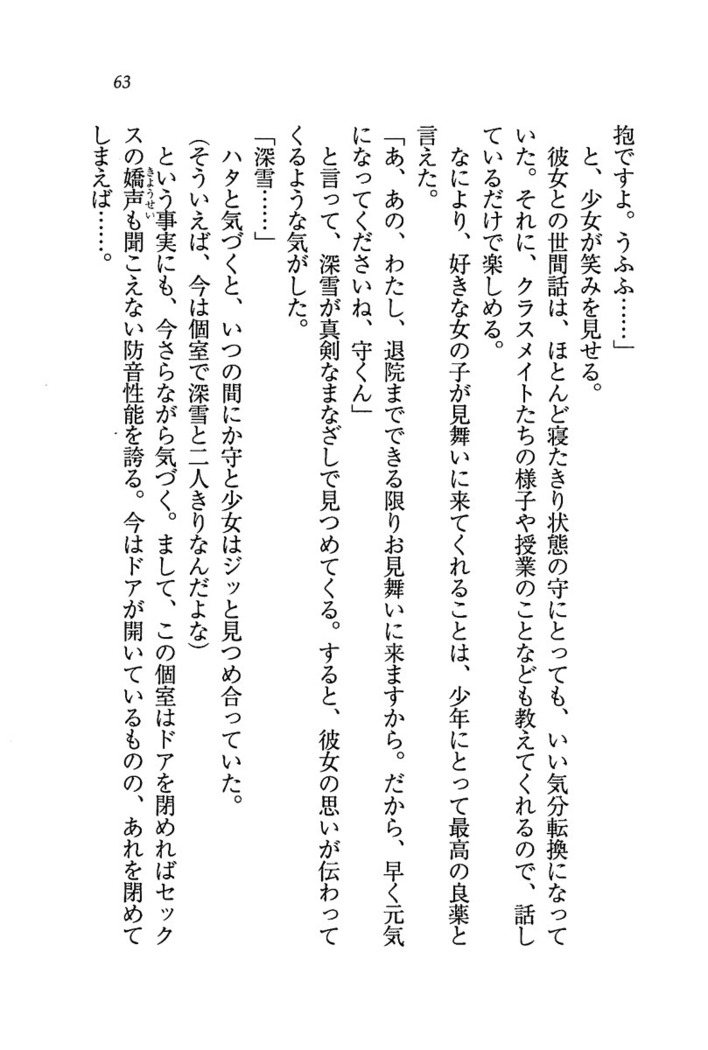 63
抱ですよ。うふふ……」
　と、少女が笑みを見せる。
　彼女との世間話は、ほとんど寝たきり状態の守にとっても、いい気分転換になって
いた。それに、クラスメイトたちの様子や授業のことなども教えてくれるので、話し
ているだけで楽しめる。
　なにより、好きな女の子が見舞いに来てくれることは、少年にとって最高の良薬と
言えた。
「あ、あの、わたし、退院までできる限りお見舞いに来ますから。だから、早く元気
になってくださいね、守くん」
　と言って、深雪が真剣なまなざしで見つめてくる。すると、彼女の思いが伝わって
くるような気がした。
「深雪……」
　ハタと気づくと、いつの間にか守と少女はジッと見つめ合っていた。
（そういえば、今は個室で深雪と二人きりなんだよな）
　という事実にも、今さらながら気づく。まして、この個室はドアを閉めればセック
スの嬌声きようせいも聞こえない防音性能を誇る。今はドアが開いているものの、あれを閉めて
しまえば……。